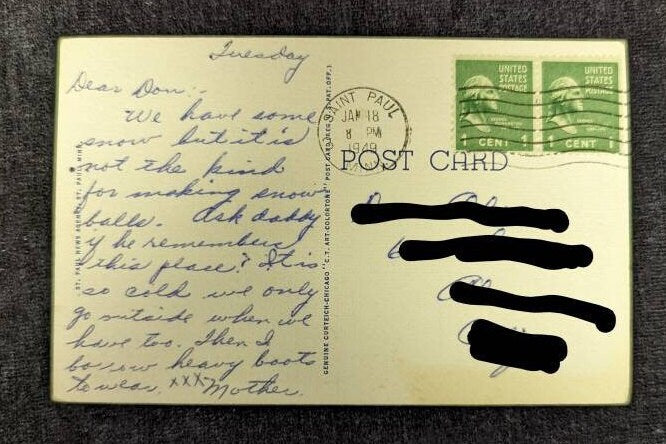 Tuesday
Dear Don:-
We have some
snow but it is
not the kind
for making snow
balls. Ask daddy
if he remembers
this place? It is
so cold we only
go outside when we
have too. Then I
borrow heavy boots
to wear. xxx Mother.
ST. PAUL NEWS AGENCY, ST. PAUL, MINN.
GENUINE CURTEICH-CHICAGO "C.T. ART-COLORTONE" POST CARD (REG. U.S. PAT. OFF.)
SAINT PAUL
JAN 18
8 PM
1949
MINN.
UNITED
STATES
POSTAGE
1 CENT 1
UNITED
STATES
POSTAGE
1 CENT 1
POST CARD